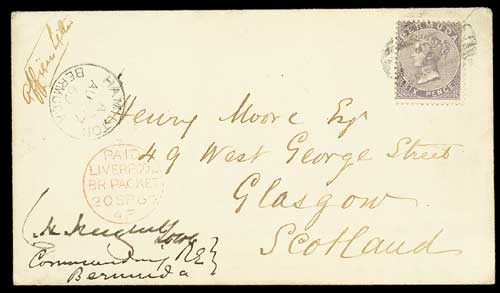 Officers Letter
BERMUDA
SIX PENCE
HAMILTON
A
AU 7
BERMUDA
Henry Moore Esqr
49 West George Street
Glasgow
Scotland
PAID
LIVERPOOL
BR PACKET
20 SP 67
Commanding R.E.
Bermuda